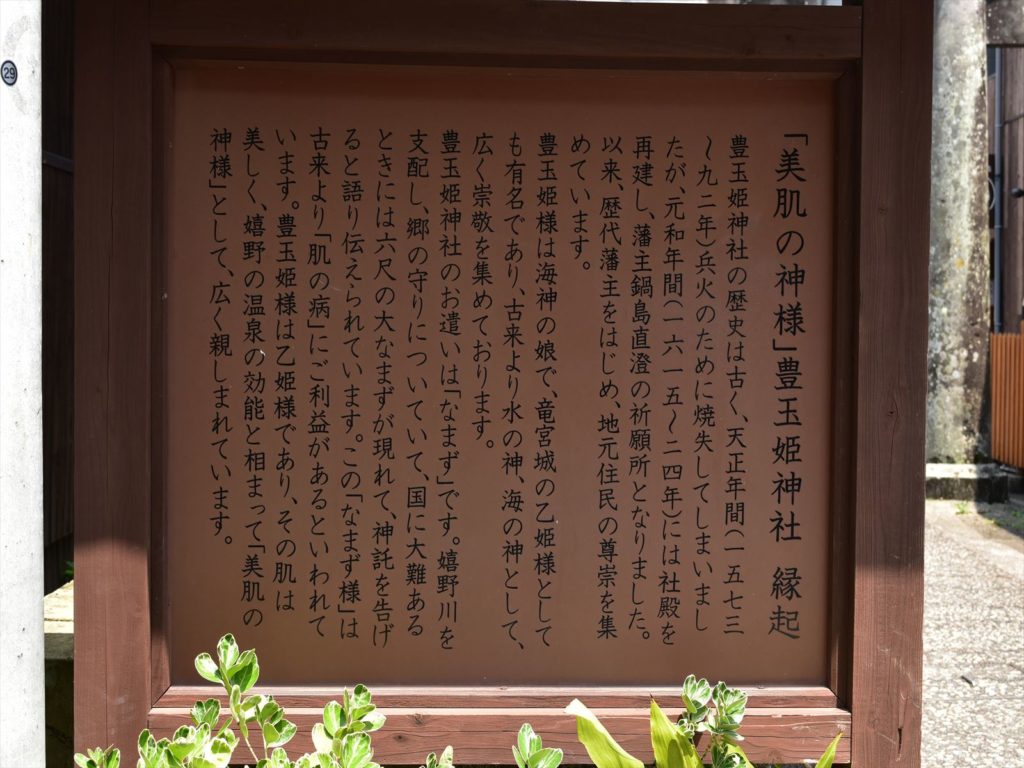 「美肌の神様」豊玉姫神社 縁起
豊玉姫神社の歴史は古く、天正年間(一五七三
〜九二年)兵火のために焼失してしまいまし
たが、元和年間(一六一五〜二四年)には社殿を
再建し、藩主鍋島直澄の祈願所となりました。
以来、歴代藩主をはじめ、地元住民の尊崇を集
めています。
豊玉姫様は海神の娘で、竜宮城の乙姫様として
も有名であり、古来より水の神、海の神として、
広く崇敬を集めております。
豊玉姫神社のお遣いは「なまず」です。嬉野川を
支配し、郷の守りについていて、国に大難ある
ときには六尺の大なまずが現れて、神託を告げ
ると語り伝えられています。この「なまず様」は
古来より「肌の病」にご利益があるといわれて
います。豊玉姫様は乙姫様であり、その肌は
美しく、嬉野の温泉の効能と相まって「美肌の
神様」として、広く親しまれています。
29